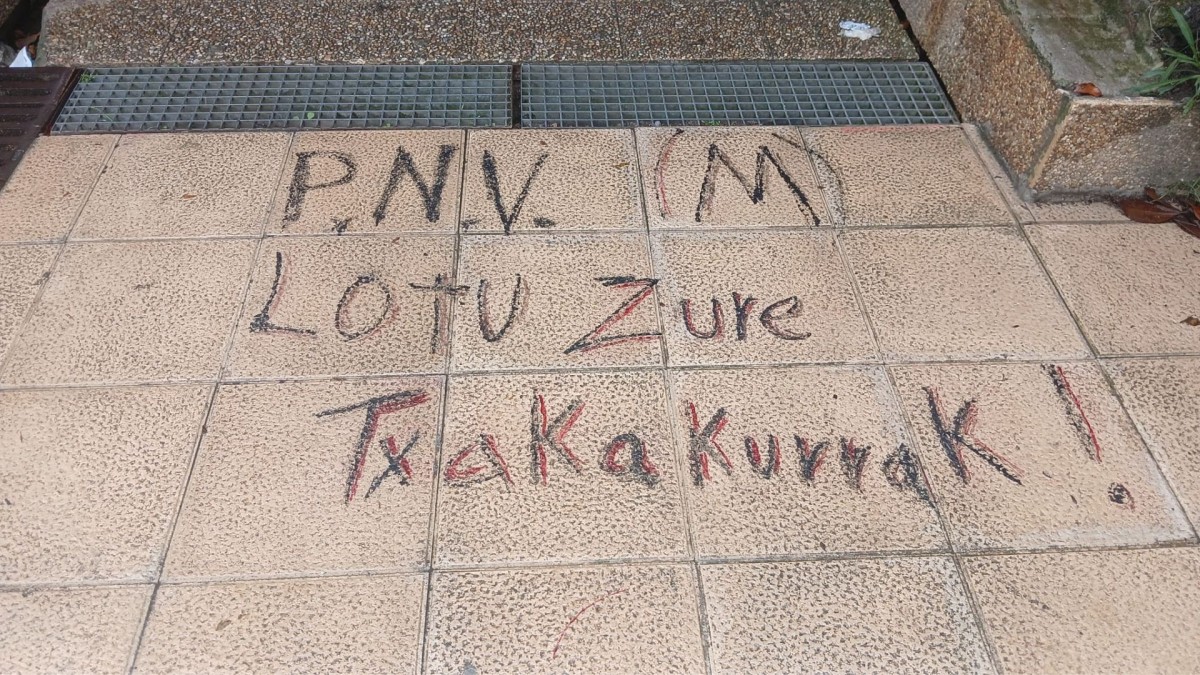 P.N.V. (M)
Lotu zure
TxaKaKurraK!